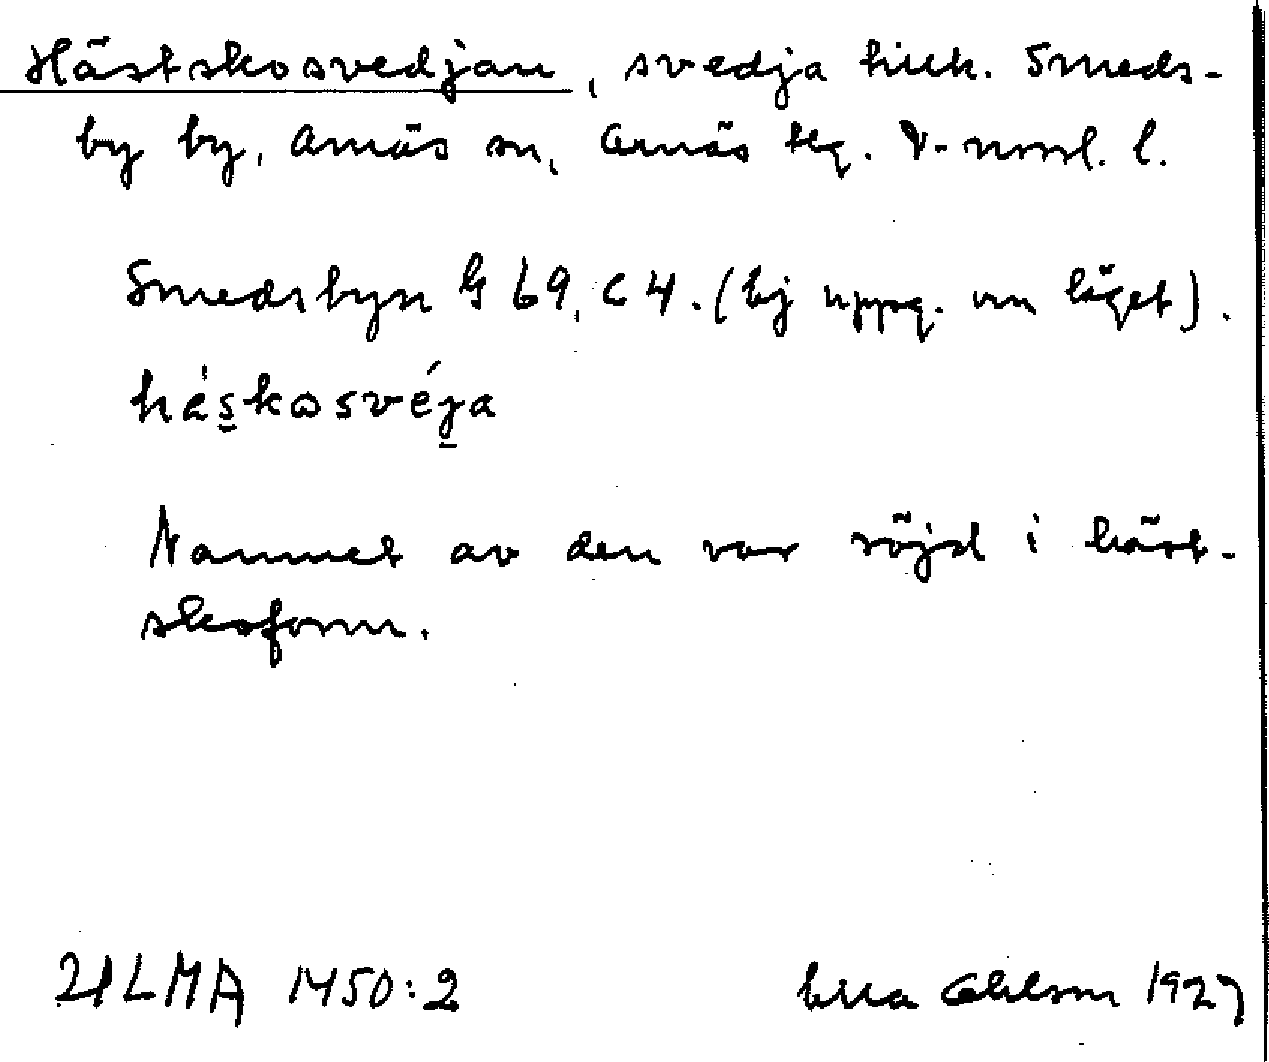 Hästskosvedjan, svedja hick. Smeds-
by by, Arnäs sn, Arnäs tlg. V-norrl. l.
Smedsbyn G 69, C 4. (Ej uppg. om läget).
häskosvéja
Namnet av den var röjd i häst-
skoform.
ULMA 1450:2
Ohlson 1927